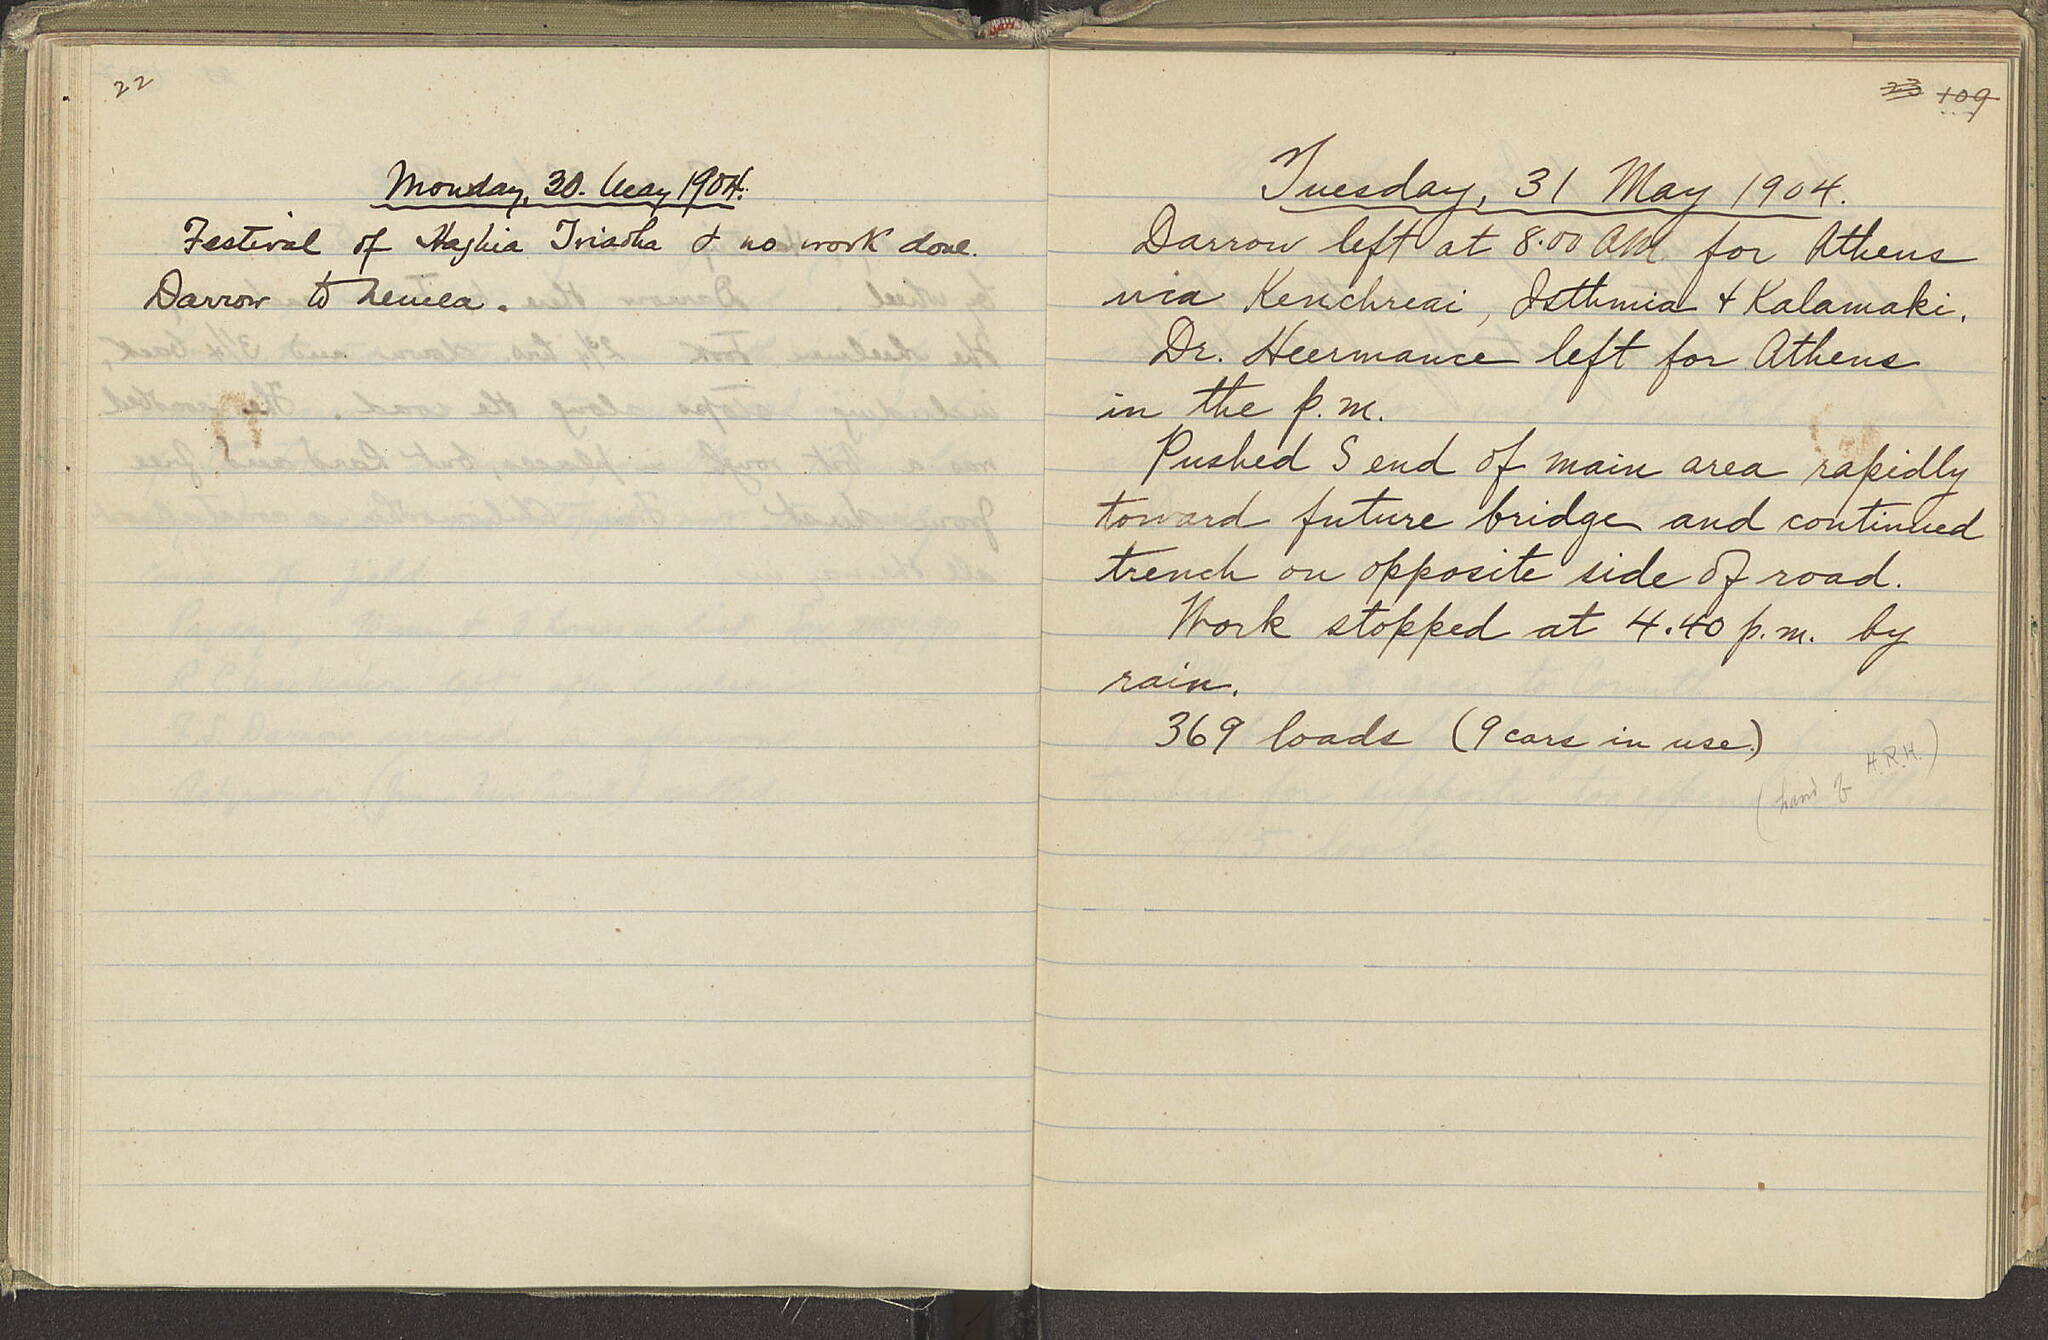 22
Monday, 30. May 1904.
Festival of Haghia Triadha & no work done.
Darrow to Nemea.
23 109
Tuesday, 31 May 1904.
Darrow left at 8.00 AM. for Athens
via Kenchreai, Isthmia & Kalamaki.
Dr. Heermance left for Athens
in the p.m.
Pushed S end of main area rapidly
toward future bridge and continued
trench on opposite side of road.
Work stopped at 4.40 p.m. by
rain.
369 loads (9 cars in use.)
(hand of H.R.H.)